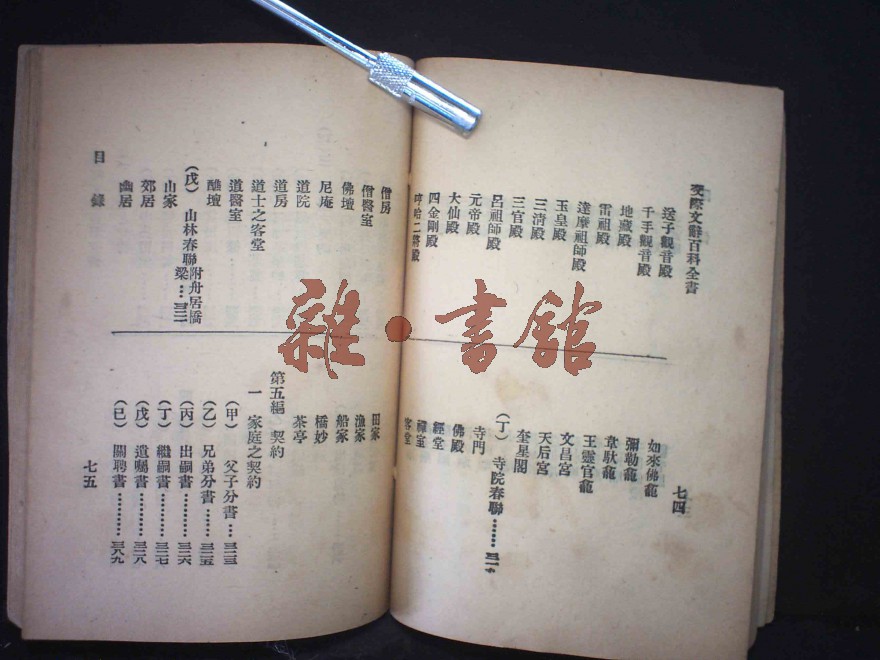 交際文辭百科全書
送子觀音殿
千手觀音殿
地藏殿
雷祖殿
達摩祖師殿
玉皇殿
三清殿
三官殿
呂祖師殿
元帝殿
大仙殿
四金剛殿
哼哈二將殿
如來佛龕
彌勒龕
韋馱龕
王靈官龕
文昌宮
天后宮
奎星閣
(丁) 寺院春聯………三二十
寺門
佛殿
經堂
禪室
客堂
七四
僧房
僧醫室
佛壇
尼庵
道院
道房
道士之客堂
道醫室
醮壇
(戊) 山林春聯附舟居橋梁…三二一
山家
郊居
幽居
田家
漁家
船家
橋妙
茶亭
第五編 契約
一 家庭之契約
(甲) 父子分書………三二三
(乙) 兄弟分書………三二五
(丙) 出嗣書………三二六
(丁) 繼嗣書………三二七
(戊) 遺囑書………三二八
(已) 關聘書………三八九
目錄
七五
雜·書館